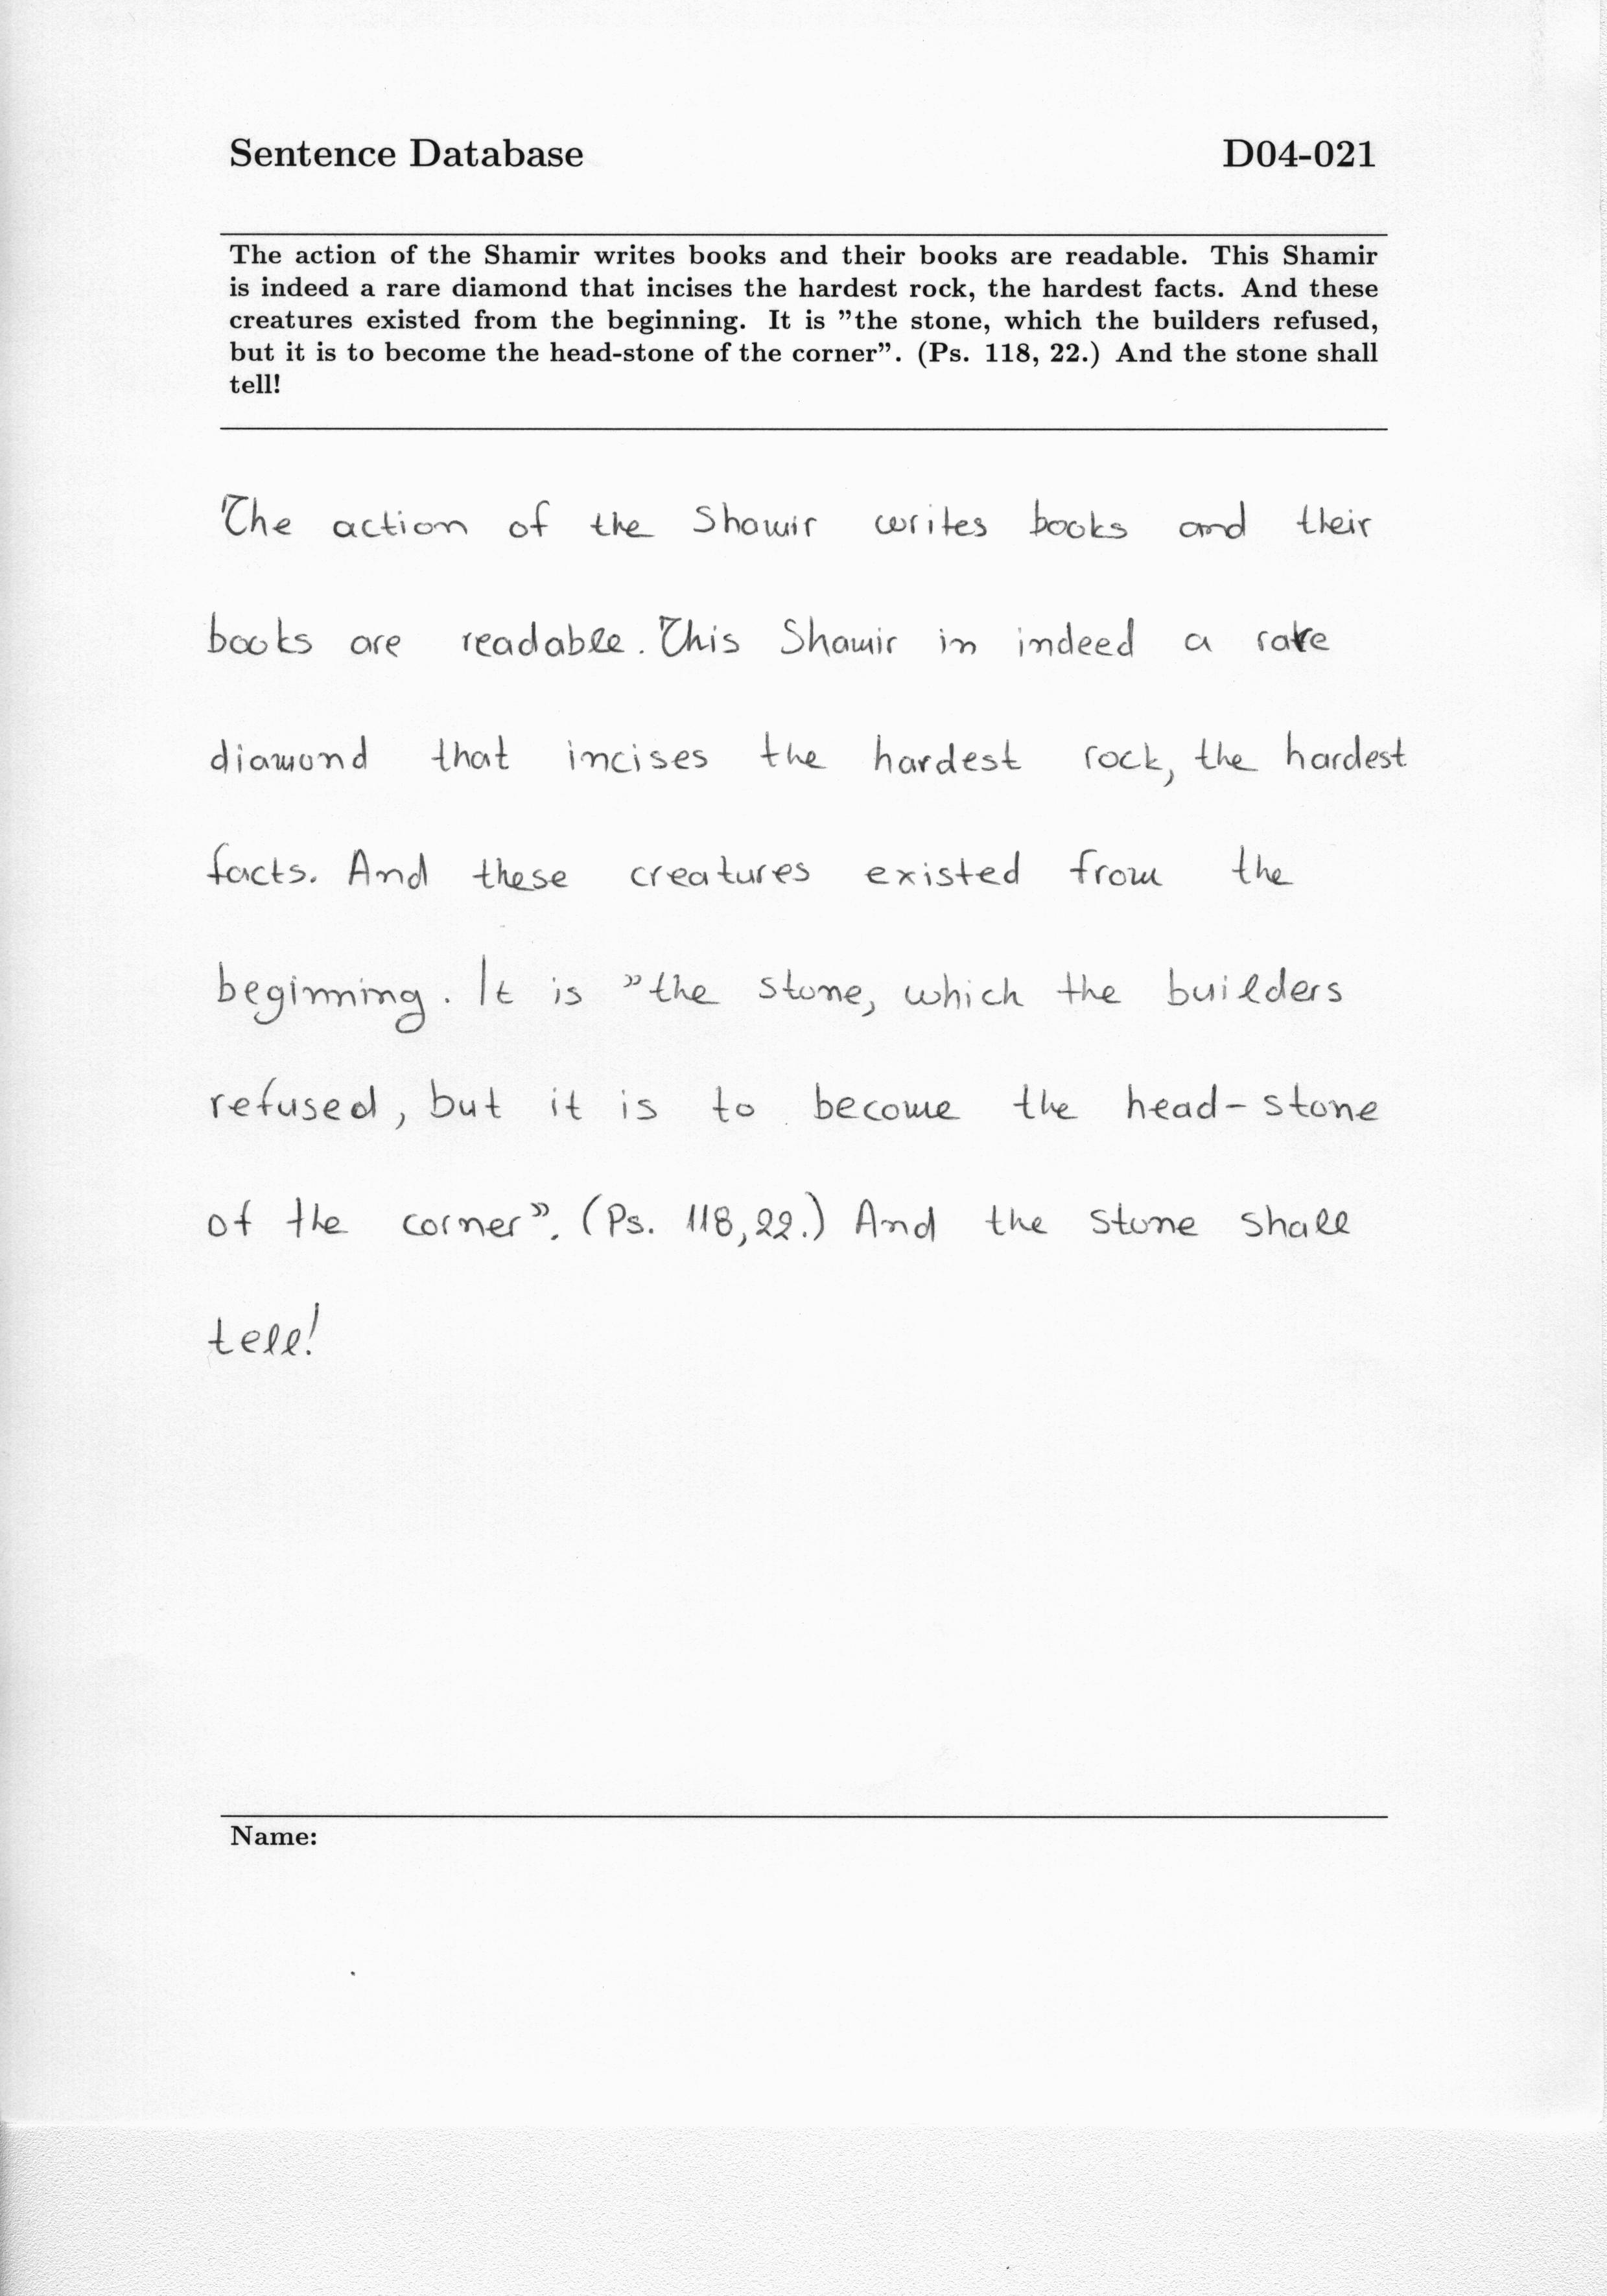 Sentence Database D04-021
The action of the Shamir writes books and their books are readable. This Shamir
is indeed a rare diamond that incises the hardest rock, the hardest facts. And these
creatures existed from the beginning. It is ”the stone, which the builders refused,
but it is to become the head-stone of the corner”. (Ps. 118, 22.) And the stone shall
tell!
The action of the Shamir writes books and their
books are readable. This Shamir in indeed a rare
diamond that incises the hardest rock, the hardest
facts. And these creatures existed from the
beginning. It is ”the stone, which the builders
refused, but it is to become the head-stone
of the corner”. (Ps. 118,22.) And the stone shall
tell!
Name: